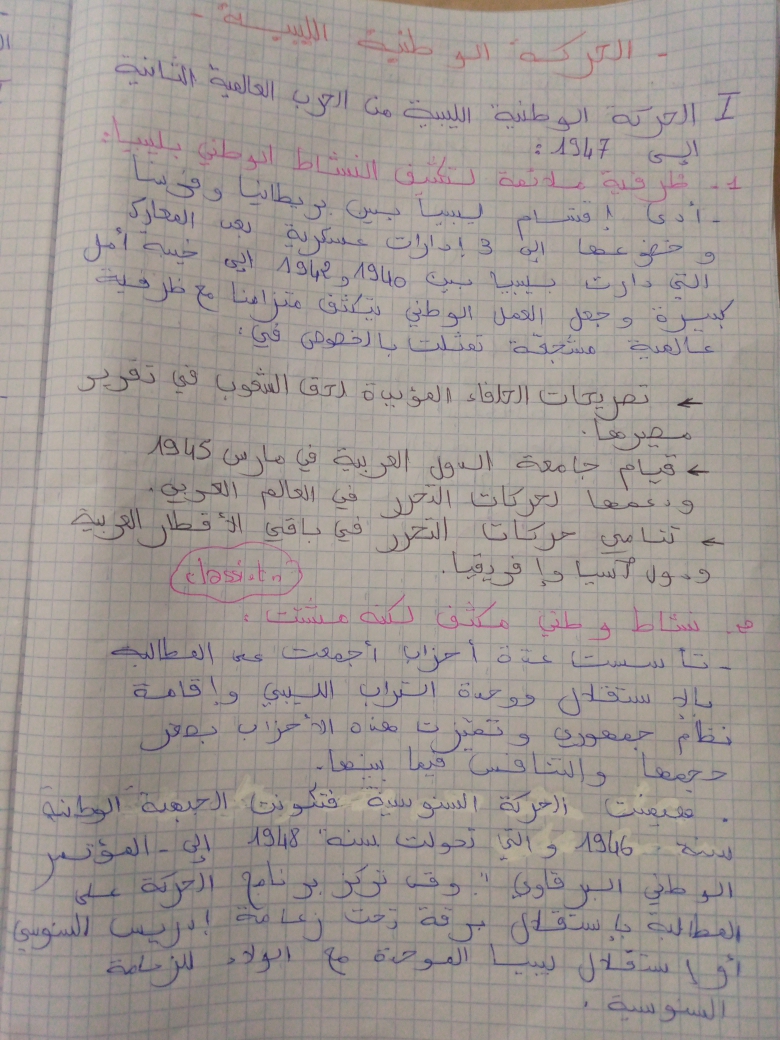 - الحركة الوطنية الليبية -
I الحركة الوطنية الليبية من الحرب العالمية الثانية
إلى 1947 :
1- ظرفية ملائمة لتكثف النشاط الوطني بليبيا:
- أدى اقتسام ليبيا بين بريطانيا وفرنسا
و خضوعها إلى 3 إدارات عسكرية بعد المعارك
التي دارت بليبيا بين 1940 و 1942 إلى خيبة أمل
كبيرة وجعل العمل الوطني يتكثف متزامنا مع ظرفية
عالمية مشجعة تمثلت بالخصوص في:
← تصريحات الحلفاء المؤيدة لحق الشعوب في تقرير
مصيرها.
← قيام جامعة الدول العربية في مارس 1945
ودعمها لحركات التحرر في العالم العربي.
← تنامي حركات التحرر في باقي الأقطار العربية
ودول آسيا وإفريقيا.
classi.tn
2- نشاط وطني مكثف لكنه مشتت :
- تأسست عدة أحزاب أجمعت على المطالبة
بالاستقلال ووحدة التراب الليبي وإقامة
نظام جمهوري وتميزت هذه الأحزاب بصغر
حجمها والتنافس فيما بينها.
. هيمنت الحركة السنوسية فتكونت الجبهة الوطنية
سنة 1946 والتي تحولت سنة 1948 إلى "المؤتمر
الوطني البرقاوي" وقد تركز برنامج الحركة على
المطالبة باستقلال برقة تحت زعامة إدريس السنوسي
أو استقلال ليبيا الموحدة مع الولاء للزعامة
السنوسية .